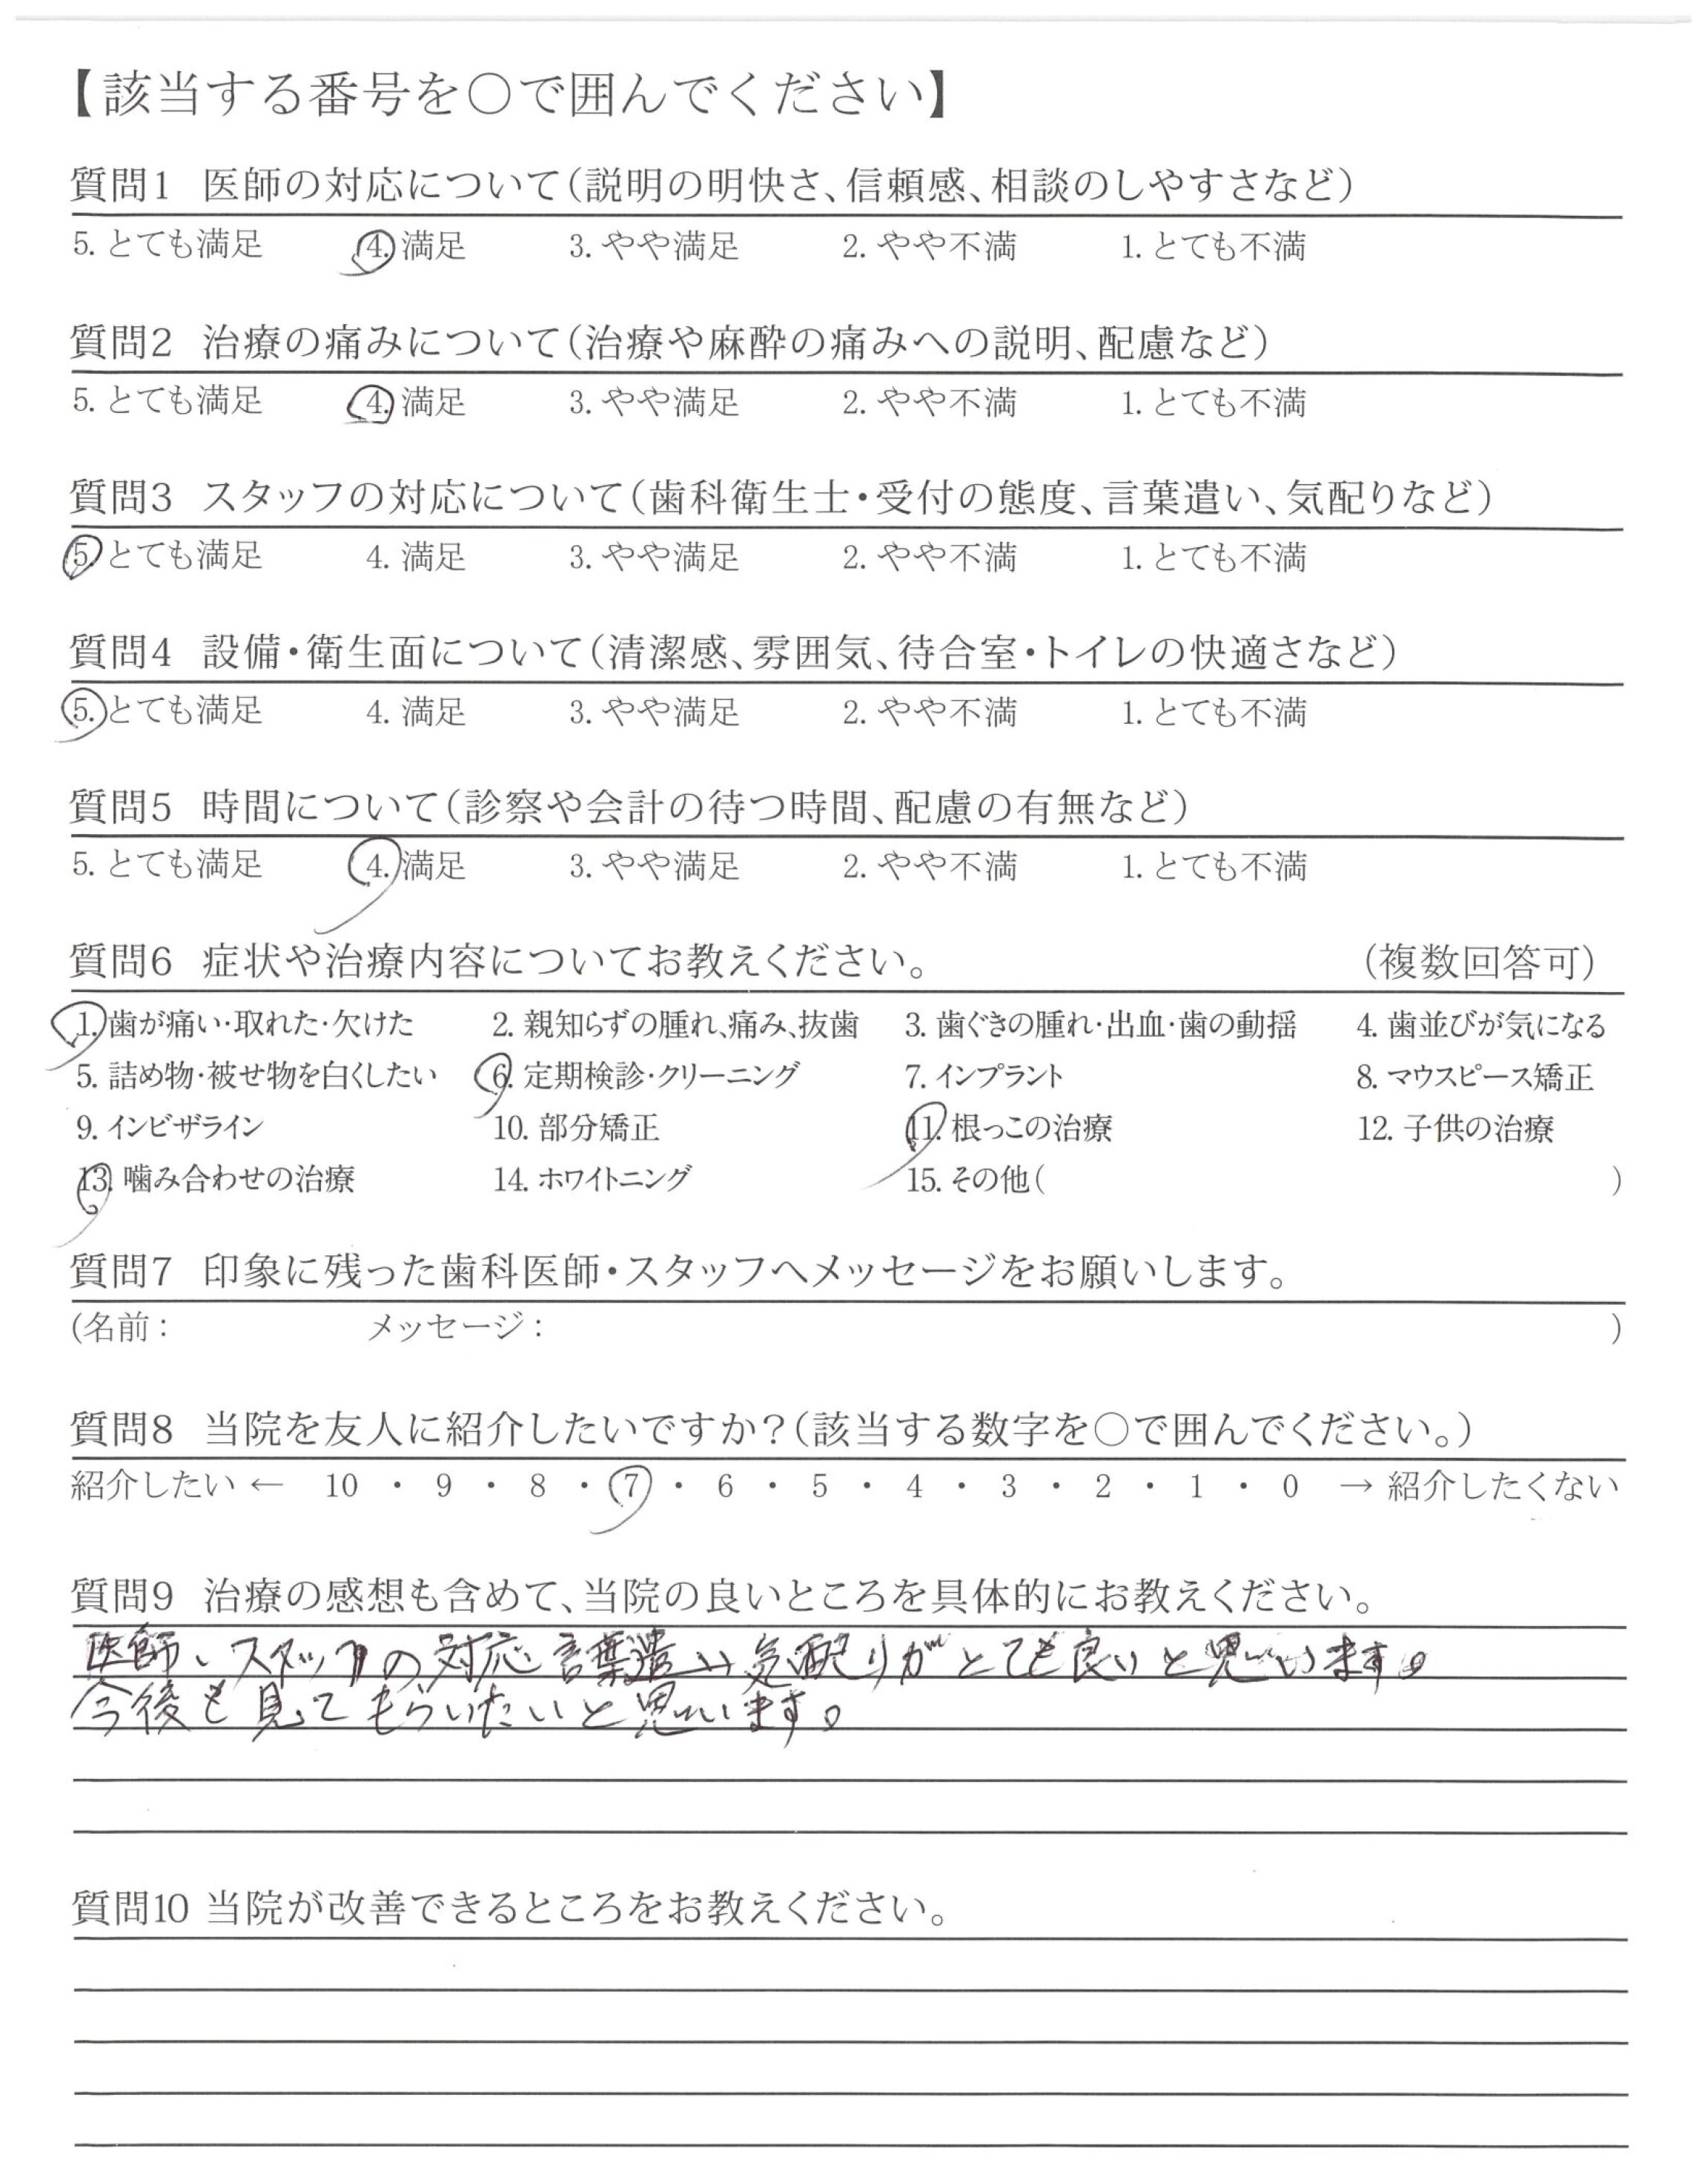 【該当する番号を○で囲んでください】
質問1 医師の対応について(説明の明快さ、信頼感、相談のしやすさなど)
5. とても満足 4. 満足 3. やや満足 2. やや不満 1. とても不満
質問2 治療の痛みについて(治療や麻酔の痛みへの説明、配慮など)
5. とても満足 4. 満足 3. やや満足 2. やや不満 1. とても不満
質問3 スタッフの対応について(歯科衛生士・受付の態度、言葉遣い、気配りなど)
5. とても満足 4. 満足 3. やや満足 2. やや不満 1. とても不満
質問4 設備・衛生面について(清潔感、雰囲気、待合室・トイレの快適さなど)
5. とても満足 4. 満足 3. やや満足 2. やや不満 1. とても不満
質問5 時間について(診察や会計の待つ時間、配慮の有無など)
5. とても満足 4. 満足 3. やや満足 2. やや不満 1. とても不満
質問6 症状や治療内容についてお教えください。 (複数回答可)
1. 歯が痛い・取れた・欠けた 2. 親知らずの腫れ、痛み、抜歯 3. 歯ぐきの腫れ・出血・歯の動揺 4. 歯並びが気になる
5. 詰め物・被せ物を白くしたい 6. 定期検診・クリーニング 7. インプラント 8. マウスピース矯正
9. インビザライン 10. 部分矯正 11. 根っこの治療 12. 子供の治療
13. 噛み合わせの治療 14. ホワイトニング 15. その他( )
質問7 印象に残った歯科医師・スタッフへメッセージをお願いします。
(名前: メッセージ: )
質問8 当院を友人に紹介したいですか?(該当する数字を○で囲んでください。)
紹介したい ← 10 ・ 9 ・ 8 ・ 7 ・ 6 ・ 5 ・ 4 ・ 3 ・ 2 ・ 1 ・ 0 → 紹介したくない
質問9 治療の感想も含めて、当院の良いところを具体的にお教えください。
医師、スタッフの対応、言葉遣い、気配りがとても良いと思います。
今後も見てもらいたいと思います。
質問10 当院が改善できるところをお教えください。